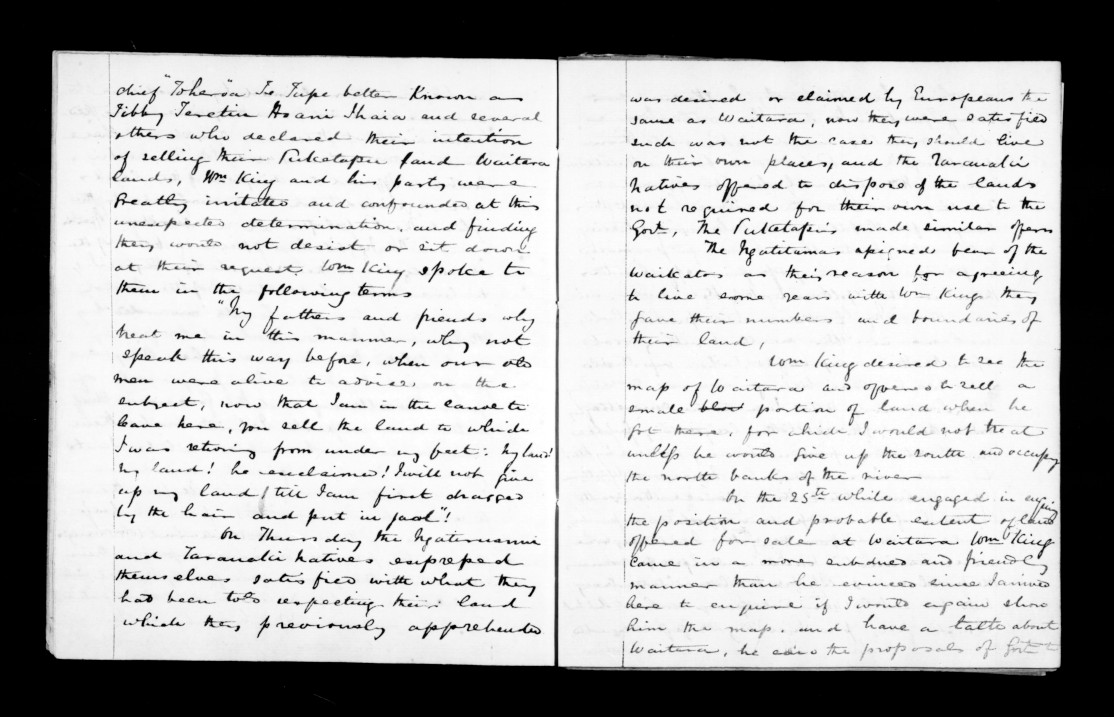 chief "Tohiroa" Te Tupe better Known as
Tibby Teretiu Hoani Ihaia and several
others who declared their intention
of selling their Puketapu land Waitara
lands, Wm King and his party were
Greatly irritated and confounded at this
unexpected determination, and finding
they would not desist or sit down
at their request Wm King spoke to
them in the following terms
"My fathers and friends why
treat me in this manner, why not
speak this way before, when our old
men were alive to advise on the
subject, now that I am in the canoe to
leave here, you sell the land to which
I was retiring from under my feet: My land!
My land! he exclaimed! I will not give
up my land till I am first dragged
by the hair and put in jaol"!
On Thursday the Ngateruanui
and Taranaki natives expressed
themselves satisfied with what they
had been told respecting their land
which they previously apprehended
was desired or claimed by Europeans the
same as Waitara, now they were satisfied
such was not the case they should live
on their own places, and the Taranaki
Natives offered to dispose of the lands
not required for their own use to the
Govt, The Puketapus made similar offers
The Ngatitamas assigned fear of the
Waikatos as their reason for agreeing
to live some years with Wm King they
gave their numbers and boundaries of
their land,
Wm King desired to see the
map of Waitara and offered to sell a
small portion of land when he
got there, for which I would not treat
unless he would give up the south and occupy
the north banks of the river
On the 25th while engaged in
the position and probable extent of land
offered for sale at Waitara Wm King
came in a more subdued and friendly
manner than he evinced since I arrived
here to enquire if I would again show
him the map, and have a talk about
Waitara, he said the proposals of Govt to